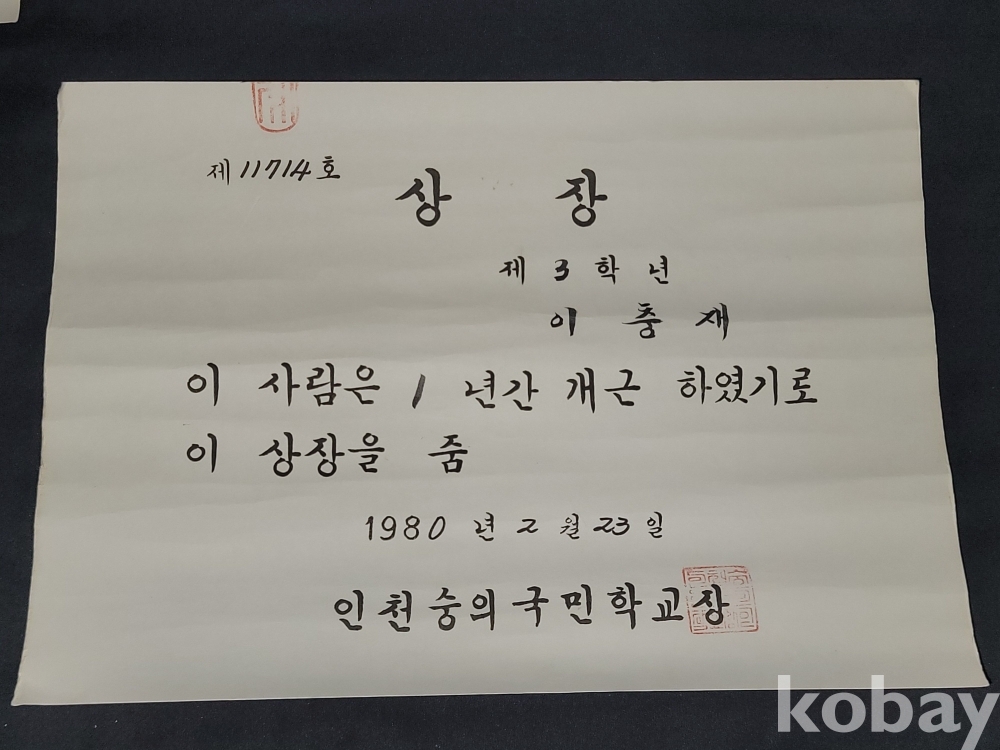 제 11714 호
상 장
제 3 학 년
이 충 재
이 사람은 1 년간 개근 하였기로
이 상장을 줌
1980 년 2 월 23 일
인천숭의국민학교장
kobay